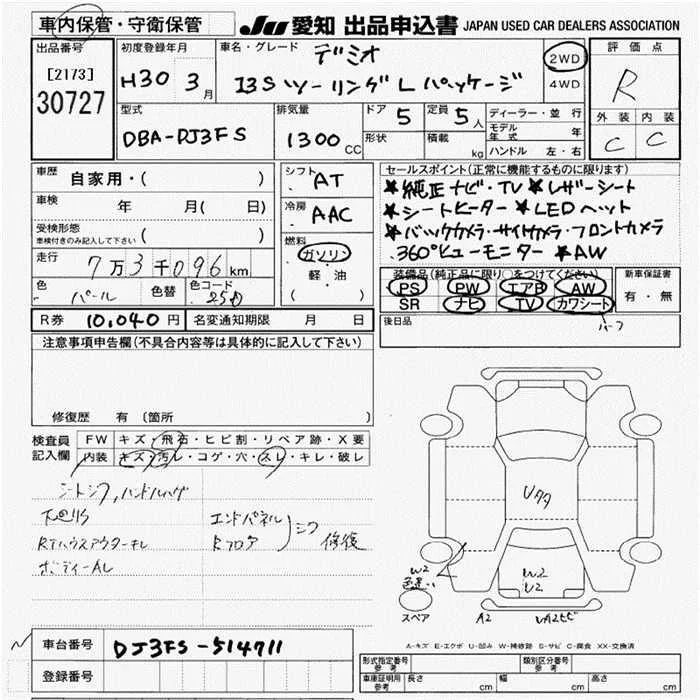 車内保管・守衛保管
JU 愛知 出品申込書 JAPAN USED CAR DEALERS ASSOCIATION
出品番号
[2173]
30727
初度登録年月
H30 3月
車名・グレード
デミオ
13S ツーリング L パッケージ
2WD
4WD
評価点
R
外装 内装
C C
型式
DBA-DJ3FS
排気量
1300 CC
ドア 5
形状
定員 5人
積載 kg
ディーラー・並行
モデル年式 年
ハンドル 左・右
車歴
自家用・( )
車検 年 月( 日)
受検形態
車検付きのみ記入して下さい ( )
走行
7万3千096km
色
パール
色替
色コード
25D
シフト
AT
冷房
AAC
燃料
ガソリン
軽・油
( )
セールスポイント(正常に機能するものに限ります)
★純正ナビ・TV ★レザーシート
★シートヒーター ★LEDヘット
★バックカメラ・サイドカメラ・フロントカメラ
360°ビューモニター ★AW
装備品(純正品に限り○をつけてください)
PS PW エアB AW
SR ナビ TV カワシート
ハーフ
新車保証書
有・無
R券 10,040円 名変通知期限 月 日
後日品
注意事項申告欄(不具合内容等は具体的に記入して下さい)
修復歴 有 〔箇所
検査員
記入欄
FW キズ・飛石・ヒビ割・リペア跡・X要
内装 キズ・汚レ・コゲ・穴・スレ・キレ・破レ
シートシワ,ハンドルハゲ
下廻りS
Rエンドパネル
Rフロア
シワ 修復
ボディーAL
Uタタ
W2
色違い
W2
U2
スペア
A2
UA2セビ
A-キズ E-エクボ U-凹み W-補修跡 S-サビ C-腐食 XX-交換済
車台番号 DJ3FS-514711
登録番号
形式指定番号
参考
類別区分番号
参考
車庫証明
参考
長さ cm 幅 cm 高さ cm